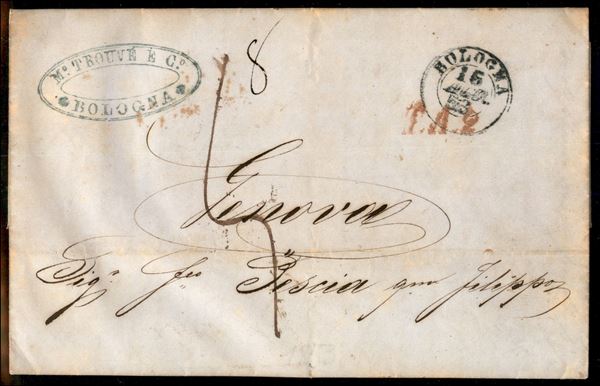 Mo. TROUVÉ E Co.
BOLOGNA
8
BOLOGNA
16
53
Genova
Sigr. Fco Pescia qm Filippo